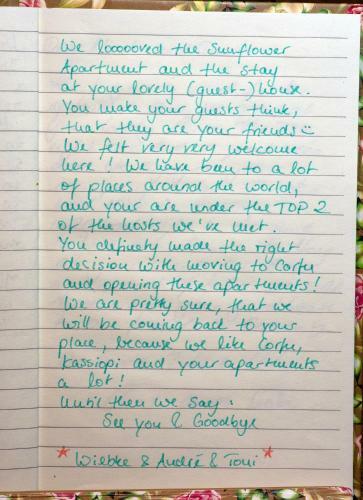 We loooooved the Sunflower
Apartment and the stay
at your lovely (guest-)house.
You make your guests think,
that they are your friends ☺
We felt very very welcome
here! We have been to a lot
of places around the world,
and your are under the TOP 2
of the hosts we've met.
You definetly made the right
decision with moving to Corfu
and opening these apartments!
We are pretty sure, that we
will be coming back to your
place, because we like Corfu,
Kassiopi and your apartments
a lot!
Until then we say:
See you & Goodbye
* Wiebke & André & Toni *